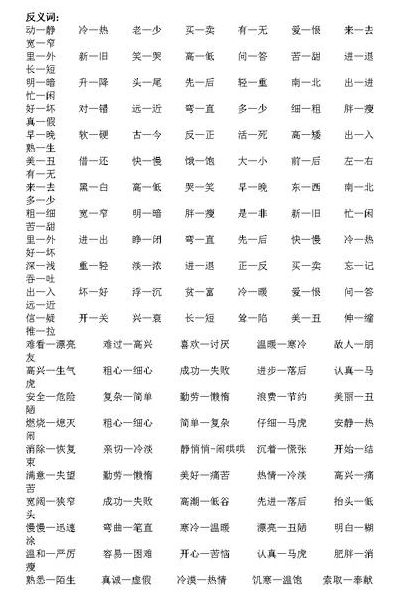 反义词:
动—静 冷—热 老—少 买—卖 有—无 爱—恨 来—去
宽—窄
里—外 新—旧 笑—哭 高—低 问—答 苦—甜 进—退
长—短
明—暗 升—降 头—尾 先—后 轻—重 南—北 出—进
忙—闲
好—坏 对—错 远—近 弯—直 多—少 细—粗 胖—瘦
真—假
早—晚 软—硬 古—今 反—正 活—死 高—矮 出—入
熟—生
美—丑 借—还 快—慢 饿—饱 大—小 前—后 左—右
有—无
来—去 黑—白 高—低 哭—笑 早—晚 东—西 南—北
多—少
粗—细 宽—窄 明—暗 胖—瘦 是—非 新—旧 忙—闲
苦—甜
里—外 进—出 睁—闭 弯—直 先—后 快—慢 冷—热
好—坏
深—浅 重—轻 淡—浓 进—退 正—反 买—卖 忘—记
吞—吐
出—入 坏—好 浮—沉 贫—富 冷—暖 爱—恨 问—答
远—近
信—疑 开—关 兴—衰 长—短 耸—陷 美—丑 伸—缩
推—拉
难看—漂亮 难过—高兴 喜欢—讨厌 温暖—寒冷 敌人—朋
友
高兴—生气 粗心—细心 成功—失败 进步—落后 认真—马
虎
安全—危险 复杂—简单 勤劳—懒惰 浪费—节约 美丽—丑
陋
燃烧—熄灭 粗心—细心 简单—复杂 仔细—马虎 安静—热
闹
消除—恢复 亲切—冷淡 静悄悄-闹哄哄 沉着—慌张 开始—结
束
满意—失望 勤劳—懒惰 美好—痛苦 热情—冷淡 高兴—痛
苦
宽阔—狭窄 成功—失败 高潮—低谷 先进—落后 抬头—低
头
慢慢—迅速 弯曲—笔直 寒冷—温暖 漂亮—丑陋 明白—糊
涂
温和—严厉 容易—困难 开心—苦恼 认真—马虎 肥胖—消
瘦
熟悉—陌生 真诚—虚假 冷漠—热情 饥寒—温饱 索取—奉献